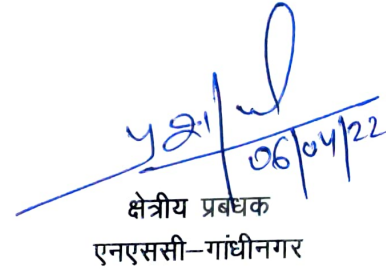 06/04/22
क्षेत्रीय प्रबंधक
एनएससी–गांधीनगर